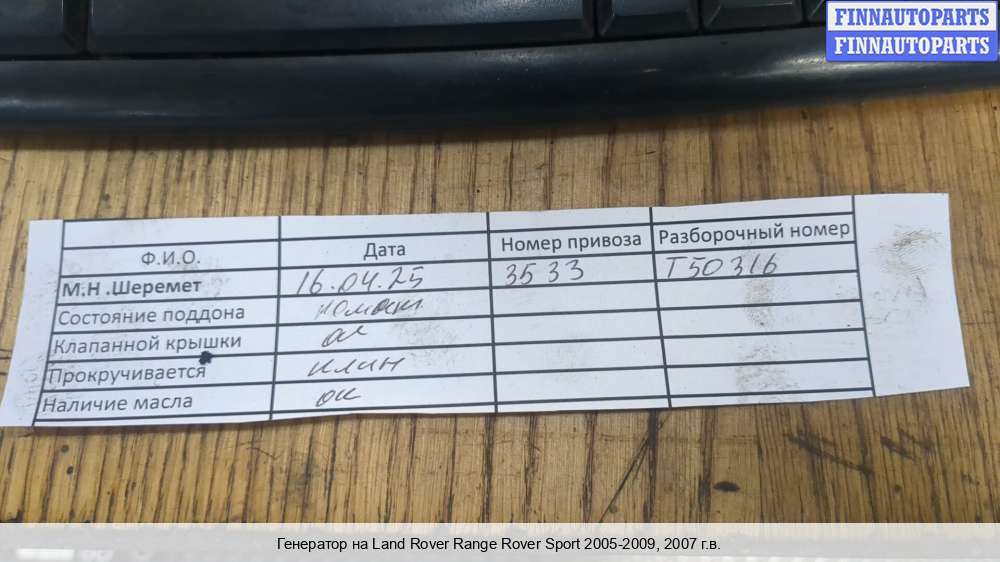 FINNAUTOPARTS
FINNAUTOPARTS
Ф.И.О. Дата Номер привоза Разборочный номер
М.Н .Шеремет 16.04.25 3533 Т50316
Состояние поддона
Клапанной крышки ок
Прокручивается клин
Наличие масла ок
Генератор на Land Rover Range Rover Sport 2005-2009, 2007 г.в.